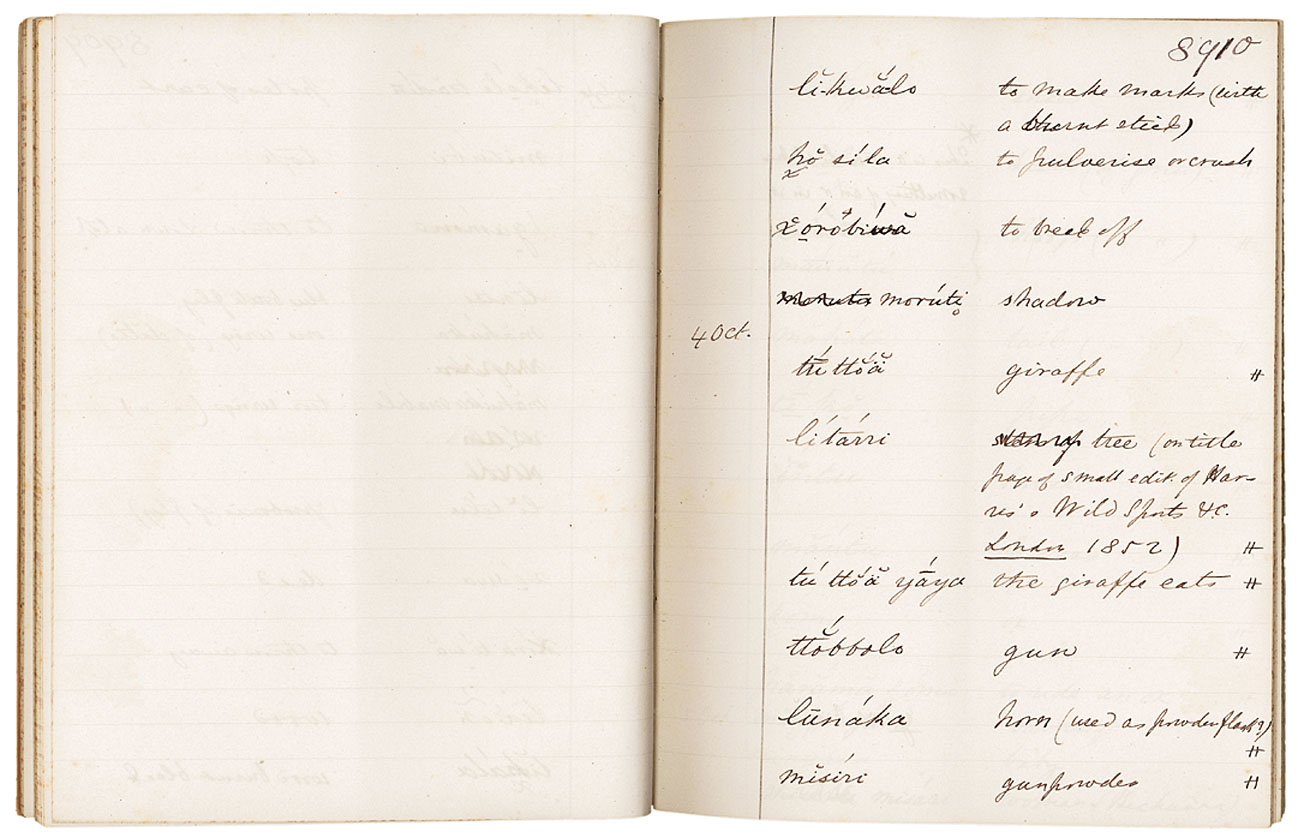 8910
lĭ-kwálo to make marks (with
a burnt stick)
hŏ síla to pulverise or crush
χŏróbĭwă to break off
morúti shadow
4 Oct.
tú ttŏă giraffe #
lítárri tree (on title
page of small edit. of Har-
ris's Wild Sports &c.
London 1852) #
tú ttŏă yáya the giraffe eats #
ttŏbbolo gun #
lūnáka horn (used as powderflask?)
#
mĭsíri gunpowder #